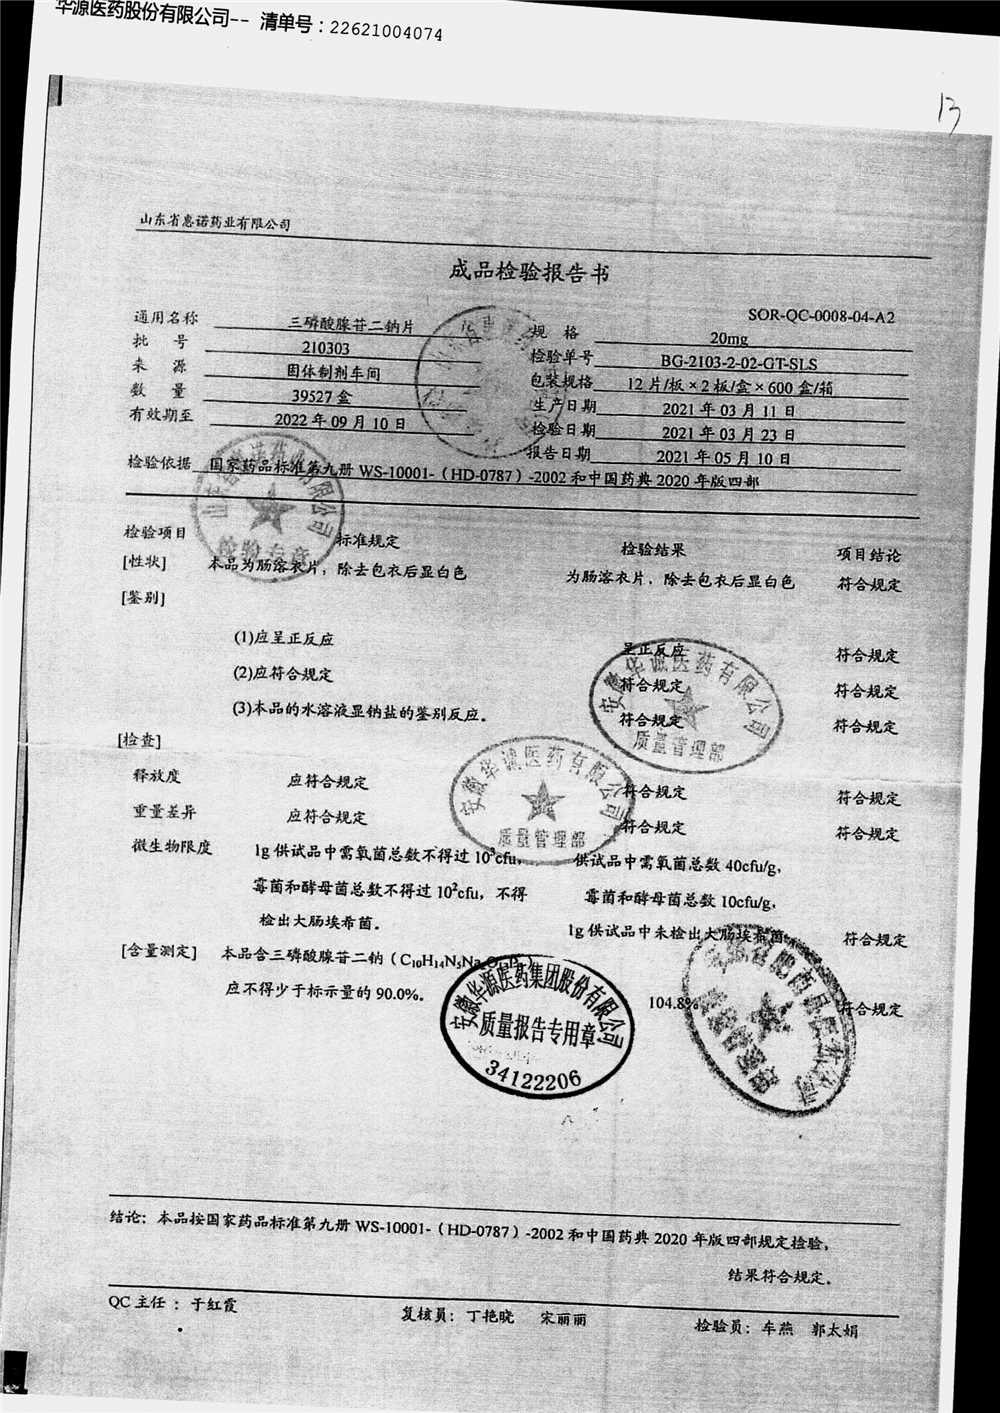 华源医药股份有限公司-- 清单号：22621004074
13
山东省惠诺药业有限公司
成品检验报告书
SOR-QC-0008-04-A2
通用名称 三磷酸腺苷二钠片 规 格 20mg
批 号 210303 检验单号 BG-2103-2-02-GT-SLS
来 源 固体制剂车间 包装规格 12 片/板×2 板/盒×600 盒/箱
数 量 39527 盒 生产日期 2021 年 03 月 11 日
有效期至 2022 年 09 月 10 日 检验日期 2021 年 03 月 23 日
报告日期 2021 年 05 月 10 日
检验依据 国家药品标准第九册 WS-10001-（HD-0787）-2002 和中国药典 2020 年版四部
检验项目 标准规定 检验结果 项目结论
[性状] 本品为肠溶衣片，除去包衣后显白色 为肠溶衣片，除去包衣后显白色 符合规定
[鉴别]
(1)应呈正反应 呈正反应 符合规定
(2)应符合规定 符合规定 符合规定
(3)本品的水溶液显钠盐的鉴别反应。 符合规定 符合规定
[检查]
释放度 应符合规定 符合规定 符合规定
重量差异 应符合规定 符合规定 符合规定
微生物限度 1g 供试品中需氧菌总数不得过 10³cfu， 供试品中需氧菌总数 40cfu/g，
霉菌和酵母菌总数不得过 10²cfu，不得 霉菌和酵母菌总数 10cfu/g，
检出大肠埃希菌。 1g 供试品中未检出大肠埃希菌 符合规定
[含量测定] 本品含三磷酸腺苷二钠（C₁₀H₁₄N₅Na
应不得少于标示量的 90.0%。 104.8% 符合规定
山东省惠诺药业有限公司
检验专章
安徽华诚医药有限公司
质量管理部
安徽华诚医药有限公司
质量管理部
安徽华源医药集团股份有限公司
质量报告专用章
34122206
结论：本品按国家药品标准第九册 WS-10001-（HD-0787）-2002 和中国药典 2020 年版四部规定检验，
结果符合规定。
QC 主任 ：于红霞 复核员：丁艳晓 宋丽丽 检验员：车燕 郭太娟